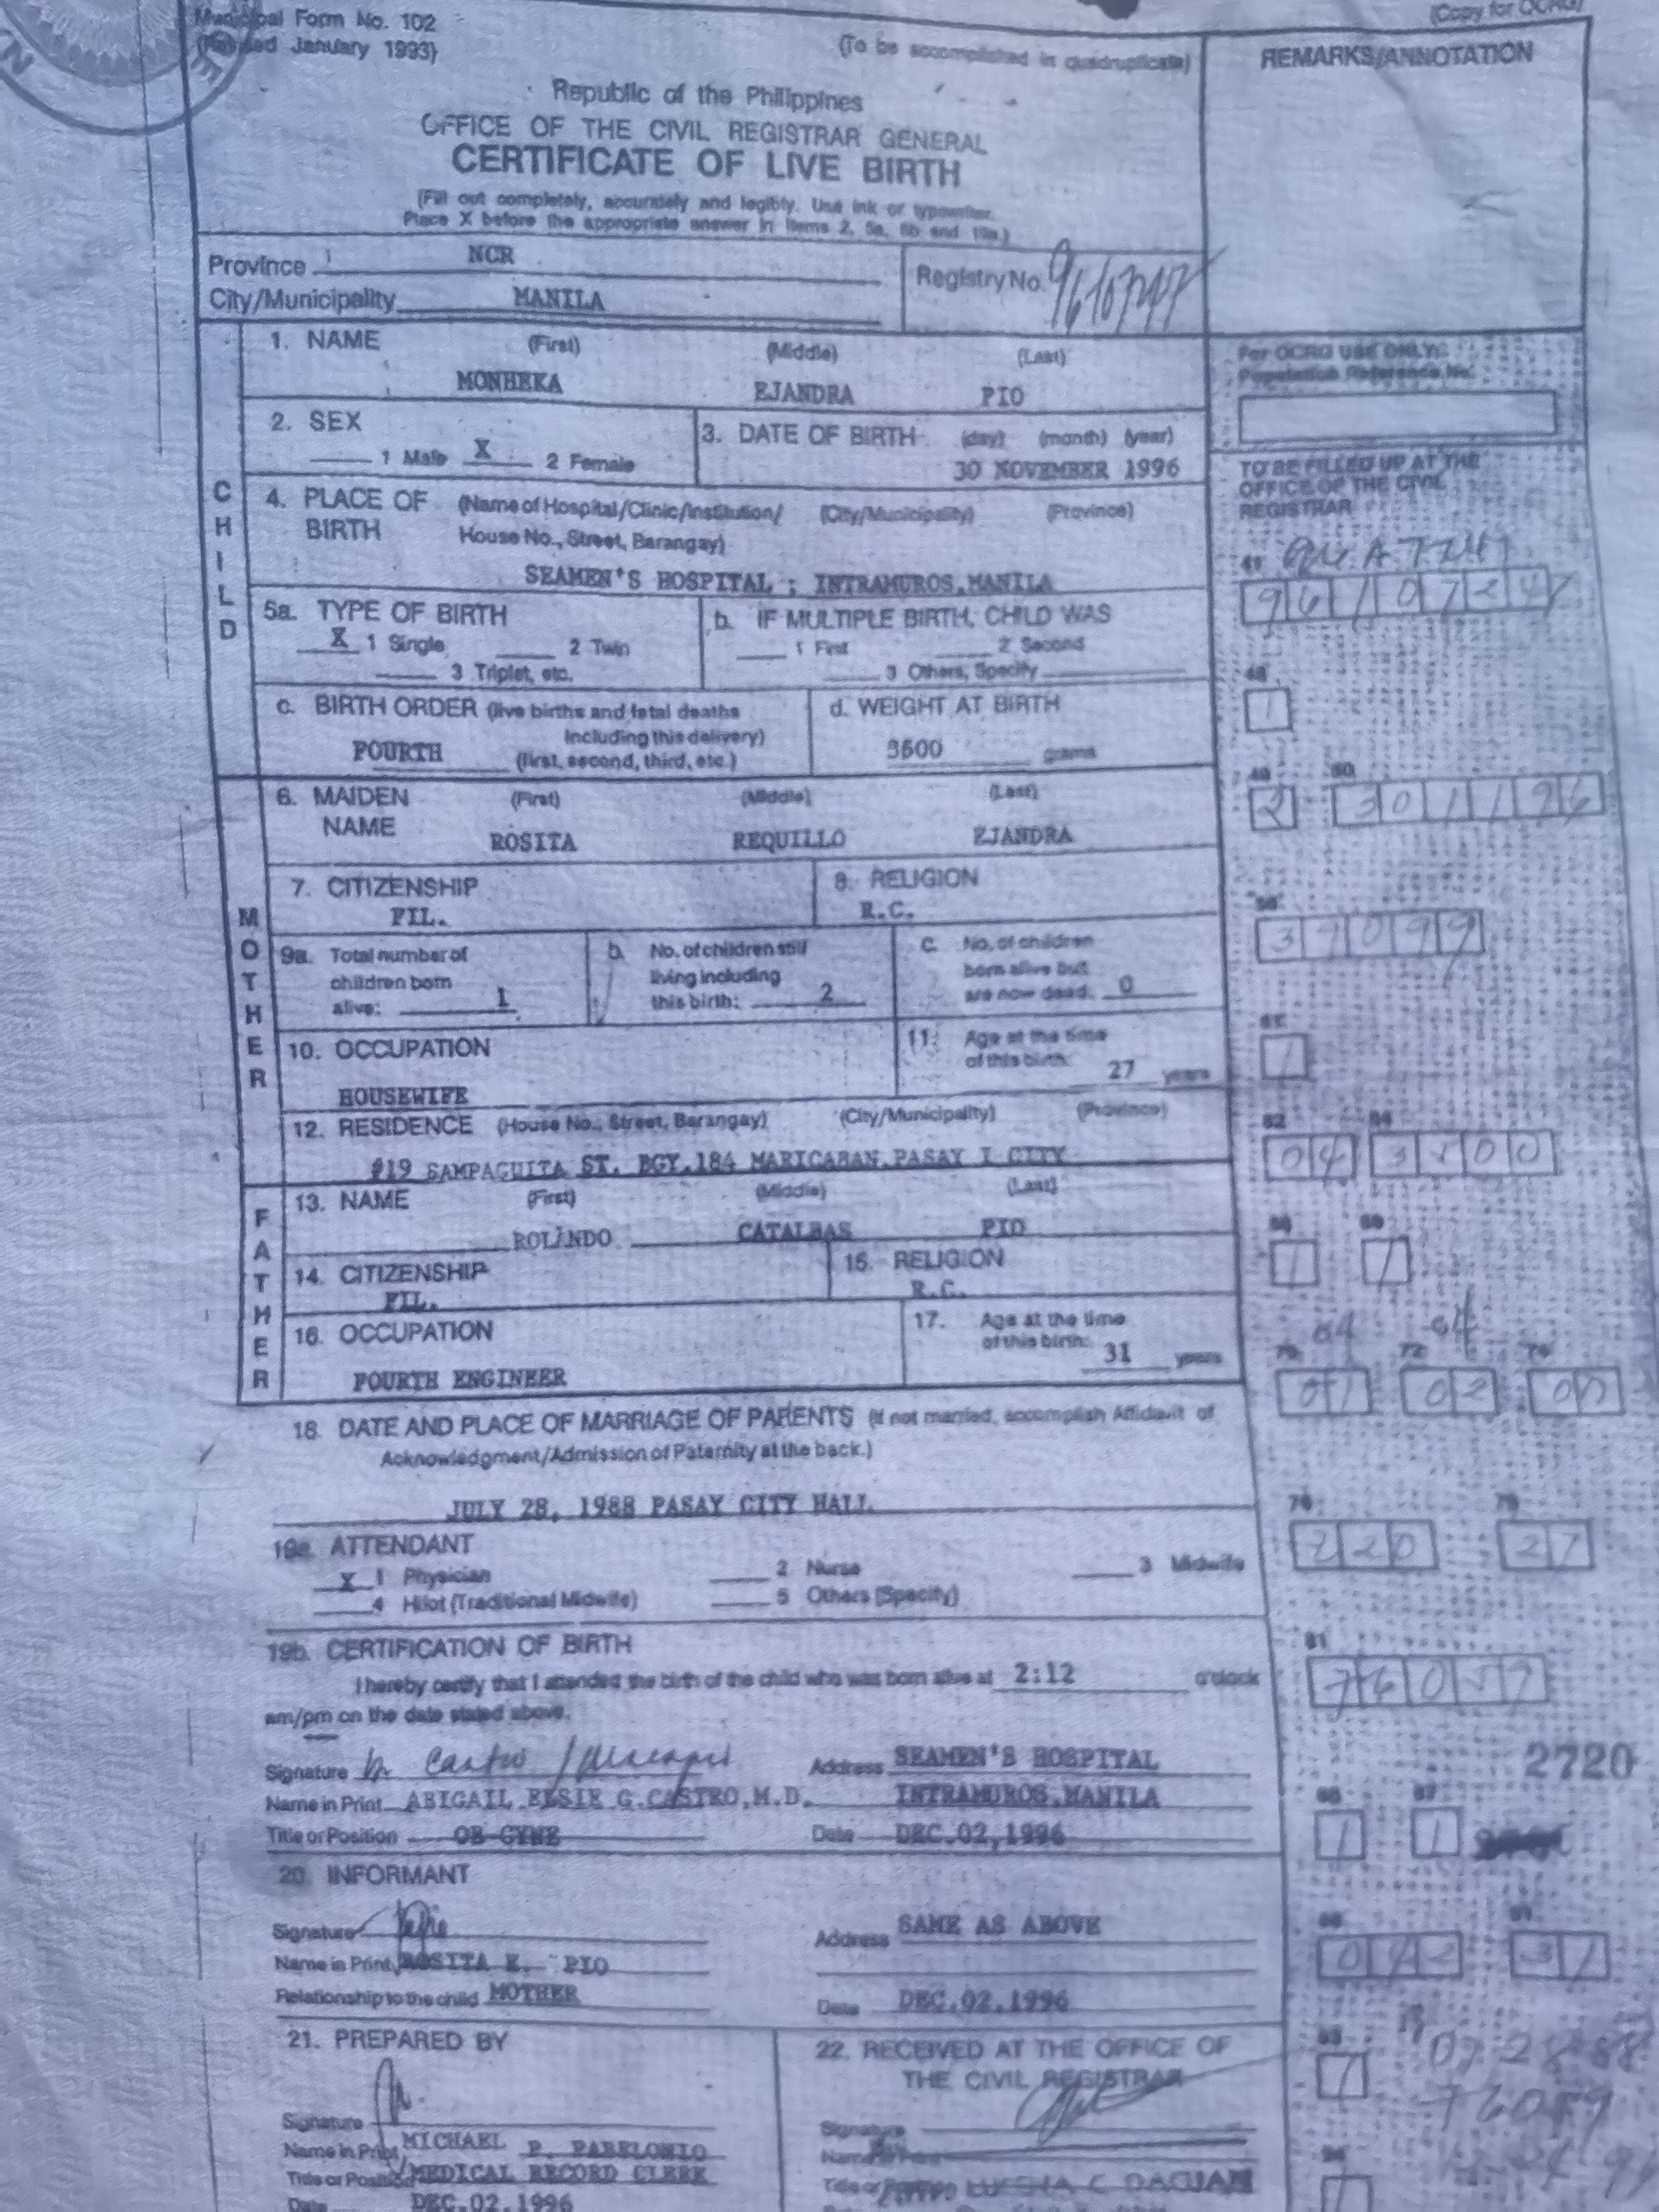 Municipal Form No. 102
(Revised January 1993)
(To be accomplished in quadruplicate)
(Copy for OCRG)
REMARKS/ANNOTATION
Republic of the Philippines
OFFICE OF THE CIVIL REGISTRAR GENERAL
CERTIFICATE OF LIVE BIRTH
(Fill out completely, accurately and legibly. Use ink or typewriter.
Place X before the appropriate answer in items 2, 5a, 5b and 19a.)
Province NCR
City/Municipality MANILA
Registry No.
For OCRG USE ONLY:
Population Reference No.
CHILD
1. NAME (First) (Middle) (Last)
MONHEKA EJANDRA PIO
2. SEX
1 Male X 2 Female
3. DATE OF BIRTH (day) (month) (year)
30 NOVEMBER 1996
TO BE FILLED UP AT THE
OFFICE OF THE CIVIL
REGISTRAR
4. PLACE OF BIRTH (Name of Hospital/Clinic/Institution/ (City/Municipality) (Province)
House No., Street, Barangay)
SEAMEN'S HOSPITAL ; INTRAMUROS, MANILA
5a. TYPE OF BIRTH
X 1 Single 2 Twin
3 Triplet, etc.
b. IF MULTIPLE BIRTH, CHILD WAS
1 First 2 Second
3 Others, Specify
c. BIRTH ORDER (live births and fetal deaths
including this delivery)
FOURTH (first, second, third, etc.)
d. WEIGHT AT BIRTH
3600 grams
MOTHER
6. MAIDEN NAME (First) (Middle) (Last)
ROSITA REQUILLO EJANDRA
49 50
2 301196
7. CITIZENSHIP
FIL.
8. RELIGION
R.C.
9a. Total number of
children born
alive: 1
b. No. of children still
living including
this birth: 2
c. No. of children
born alive but
are now dead: 0
10. OCCUPATION
HOUSEWIFE
11. Age at the time
of this birth: 27 years
12. RESIDENCE (House No., Street, Barangay) (City/Municipality) (Province)
#19 SAMPAGUITA ST. BGY.184 MARICABAN, PASAY I CITY
FATHER
13. NAME (First) (Middle) (Last)
ROLANDO CATALBAS PIO
14. CITIZENSHIP
FIL.
15. RELIGION
R.C.
16. OCCUPATION
FOURTH ENGINEER
17. Age at the time
of this birth: 31 years
18. DATE AND PLACE OF MARRIAGE OF PARENTS (If not married, accomplish Affidavit of
Acknowledgment/Admission of Paternity at the back.)
JULY 28, 1988 PASAY CITY HALL
19a. ATTENDANT
X 1 Physician 2 Nurse 3 Midwife
4 Hilot (Traditional Midwife) 5 Others (Specify)
19b. CERTIFICATION OF BIRTH
I hereby certify that I attended the birth of the child who was born alive at 2:12 o'clock
am/pm on the date stated above.
Signature Address SEAMEN'S HOSPITAL
Name in Print ABIGAIL ELSIE G.CASTRO, M.D. INTRAMUROS, MANILA
Title or Position OB GYNE Date DEC.02,1996
2720
20. INFORMANT
Signature Address SAME AS ABOVE
Name in Print ROSITA E. PIO
Relationship to the child MOTHER Date DEC.02.1996
21. PREPARED BY
Signature
Name in Print MICHAEL P. PABELONIO
Title or Position MEDICAL RECORD CLERK
Date DEC.02.1996
22. RECEIVED AT THE OFFICE OF
THE CIVIL REGISTRAR
Signature
Name in Print
Title or Position